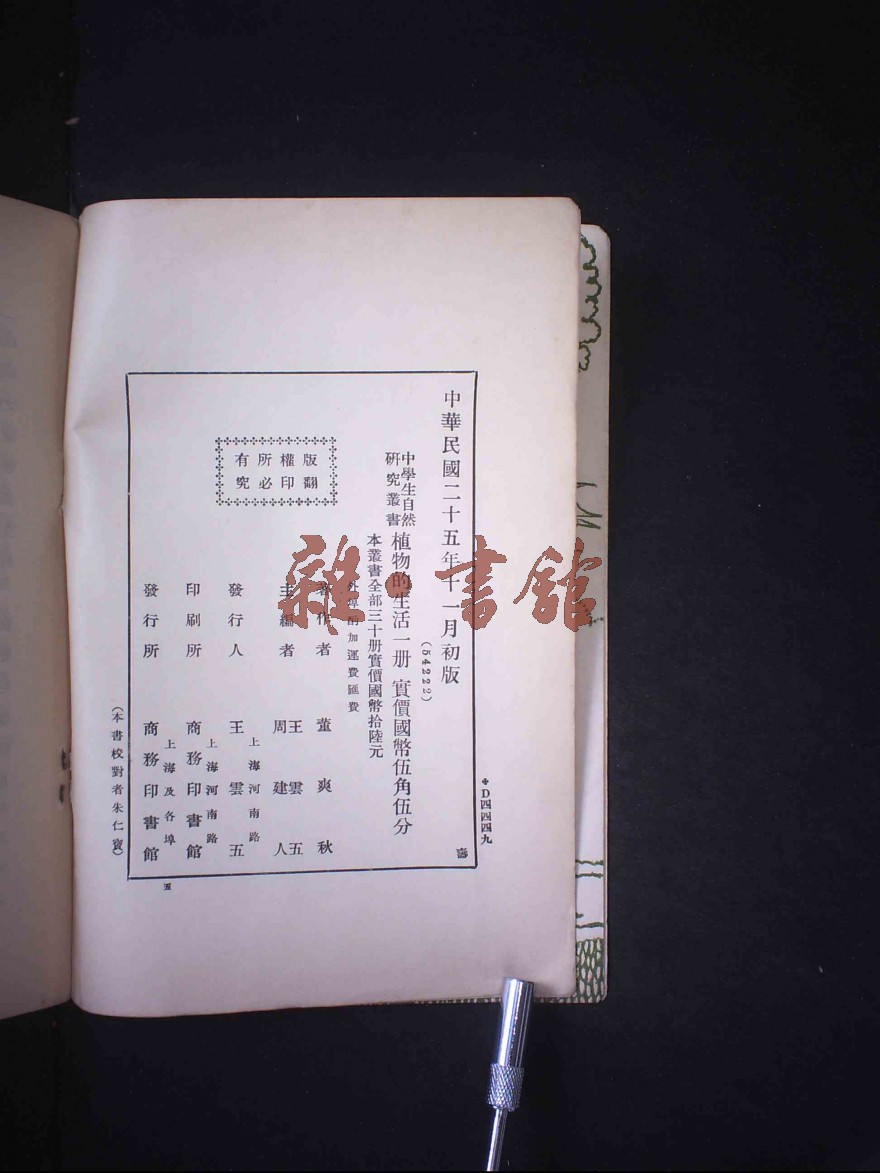 中華民國二十五年十一月初版
(54222)
中學生自然
研究叢書
植物的生活一册 實價國幣伍角伍分
本叢書全部三十册實價國幣拾陸元
外埠酌加運費匯費
版權所有
翻印必究
著作者 董爽秋
主編者 王雲五
周建人
發行人 王雲五
上海河南路
印刷所 商務印書館
上海河南路
發行所 商務印書館
上海及各埠
(本書校對者朱仁寶)
D四四四九
五
雜·書館